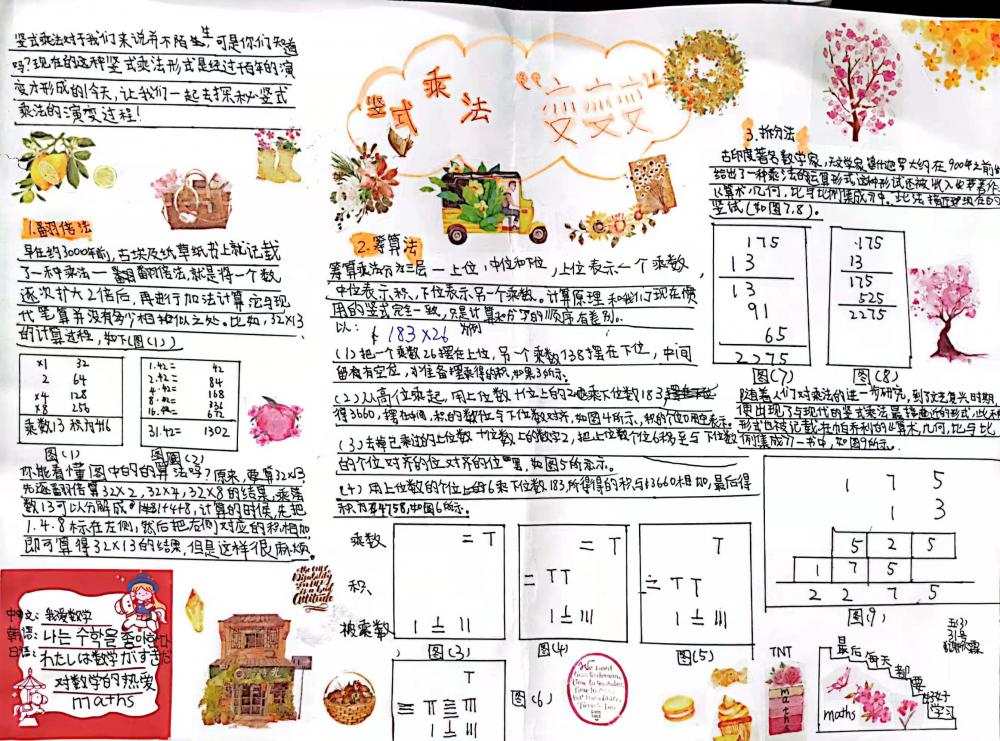 竖式乘法对于我们来说并不陌生,可是你们知道
吗?现在的这种竖式乘法形式是经过千百年的演
变才形成的今天,让我们一起去探秘竖式
乘法的演变过程!
竖式乘法“变变变”
1.翻倍法
早在约3000年前,古埃及纸草纸书上就记载
了一种乘法一翻翻倍法,就是将一个数
逐次扩大2倍后,再进行加法计算它与现
代笔算并没有多少相和似之处。比如,32×13
的计算过程,如下(图(1))
×1 32
2 64
×4 128
×8 256
乘数13 积为416
图(1)
1.42= 42
2.42= 84
168
336
672
31.42= 1302
图(2)
你能看懂图中的的算法吗?原来,要算32×13,
先逐翻倍算32×2,32×4,32×8的结果,乘
数13可以分解成1+4+8,计算的时候,先把
1.4.8标在左侧,然后把右侧对应的积相加
即可算得32×13的结果,但是这样很麻烦。
2.筹算法
筹算乘法分为三层一上位,中位和下位,上位表示一个乘数,
中位表示积,下位表示另一个乘数。计算原理和我们现在惯
用的竖式完全一致,只是计算和分写的顺序有差别。
以: 183×26 为例
(1)把一个乘数26摆在上位,另一个乘数138摆在下位,中间
留有有空位,准备摆乘得的积,如果3所示。
(2)从高位乘起,用上位数十位上的2乘下位数183
得3660,摆在中间,积的数位与下位数对齐,如图4所示,积的个位0用空表示。
(3)去掉已乘过的上位数十位数上的数字2,把上位数个位6移至与下位数
的个位对齐的位对齐的位置,如图5所示。
(4)用上位数的个位上的6乘下位数183,所得得的积与3660相加,最后得
积为4758,如图6所示。
乘数
积
被乘数
= T
1 ≐ 11
图(3)
= T
= TT
1 ≐ 111
图(4)
T
TT
1 ≐ 111
图(5)
T
图(6)
3.拆分法
古印度著名数学家,天文学家 大约在900年之前
给出了一种乘法的运算形式,这种形式还被收入
《算术,几何,比与比例集成》中。此法接近现在的
竖试(如图7.8)。
175
13
13
91
65
2275
图(7)
175
13
175
525
2275
图(8)
随着人们对乘法的进一步研究,到了文艺复兴时期,
便出现了与现代的竖式乘法最接近的形式,此种
形式也被记载在帕乔利的《算术,几何,比与比
例集成》一书中,如图9所示。
1 7 5
1 3
5 2 5
1 7 5
2 2 7 5
图(9)
中文:我爱数学
韩语:나는 수학을 좋아한다
日语:わたしは数学がすきだ
对数学的热爱
maths
TNT
maths
最后每天都要
好好学习
maths
五(3)
31号